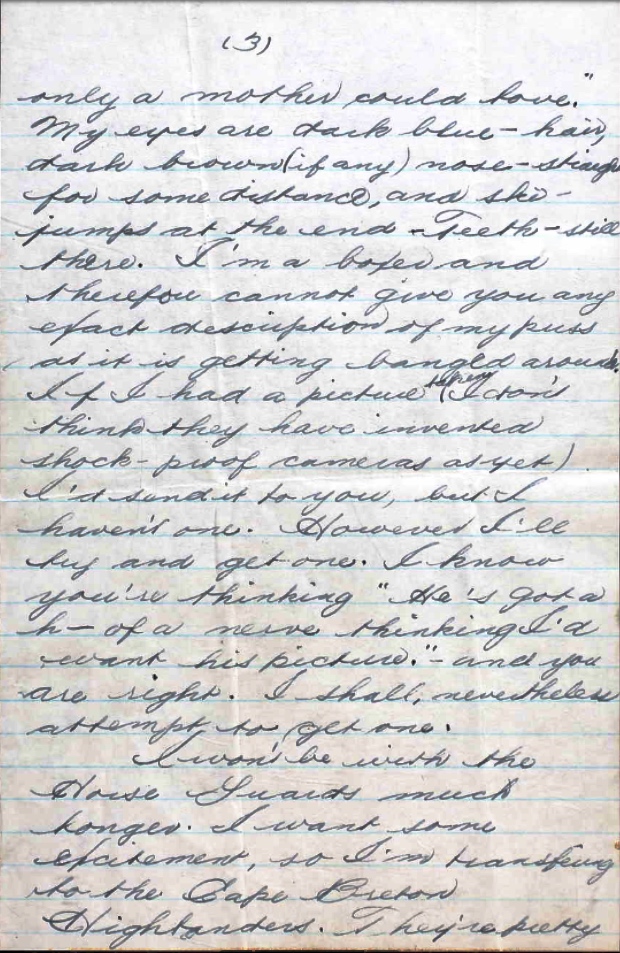 (3)
only a mother could love."
My eyes are dark blue - hair,
dark brown (if any) nose - straight
for some distance, and ski-
jumps at the end - Teeth - still
there. I'm a boxer and
therefore cannot give you any
exact description of my puss
as it is getting banged around.
If I had a picture taken (I don't
think they have invented
shock-proof cameras as yet)
I'd send it to you, but I
haven't one. However I'll
try and get one. I know
you're thinking "He's got a
h— of a nerve thinking I'd
want his picture." - and you
are right. I shall, nevertheless
attempt to get one.
I won't be with the
Horse Guards much
longer. I want some
excitement, so I'm transfering
to the Cape Breton
Highlanders. They're pretty